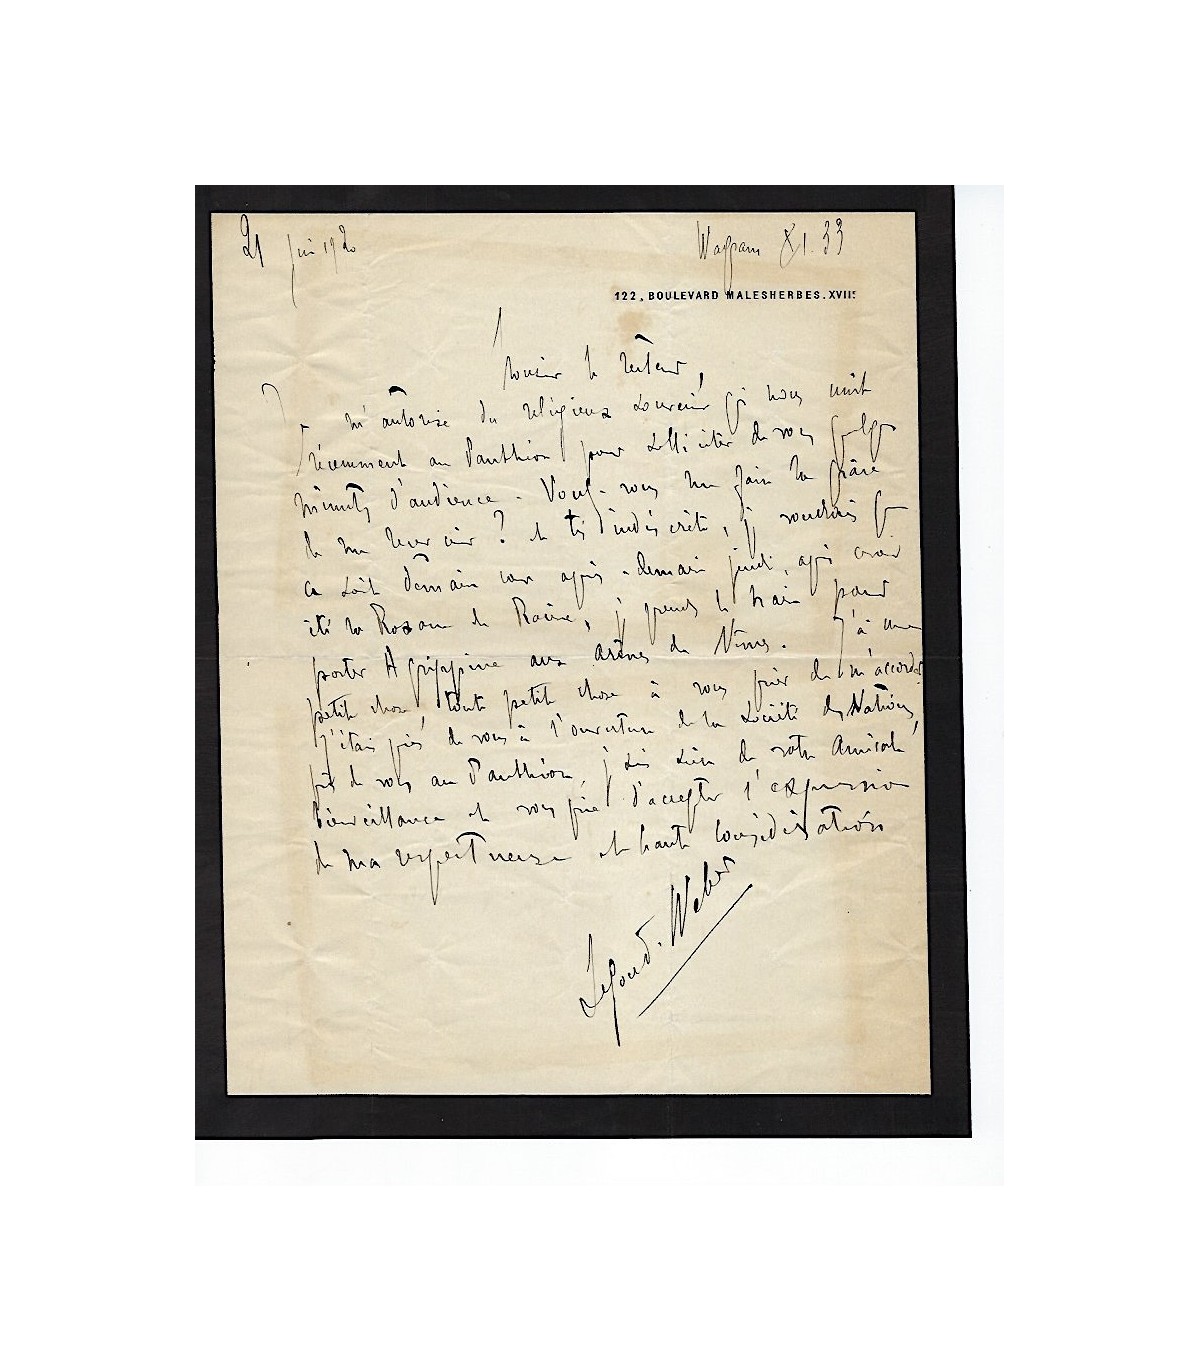 21 juin 1920
Wagram 81.33
122, BOULEVARD MALESHERBES. XVIIe
Monsieur le Recteur,
Je m'autorise du religieux souvenir qui nous unit
récemment au Panthéon pour solliciter de vous quelques
minutes d'audience. Voulez-vous me faire la grâce
de me recevoir ? et très indiscrète, je voudrais que
ce soit demain car après-demain jeudi, après avoir
été la Roxane de Racine, je prends le train pour
porter Agrippine aux arènes de Nîmes. J'ai une
petite chose, toute petite chose à vous prier de m'accorder
J'étais près de vous à l'ouverture de la Société des Nations,
près de vous au Panthéon, je suis sûre de votre amicale
bienveillance et vous prie d'accepter l'expression
de ma respectueuse et haute considération
Segond-Weber